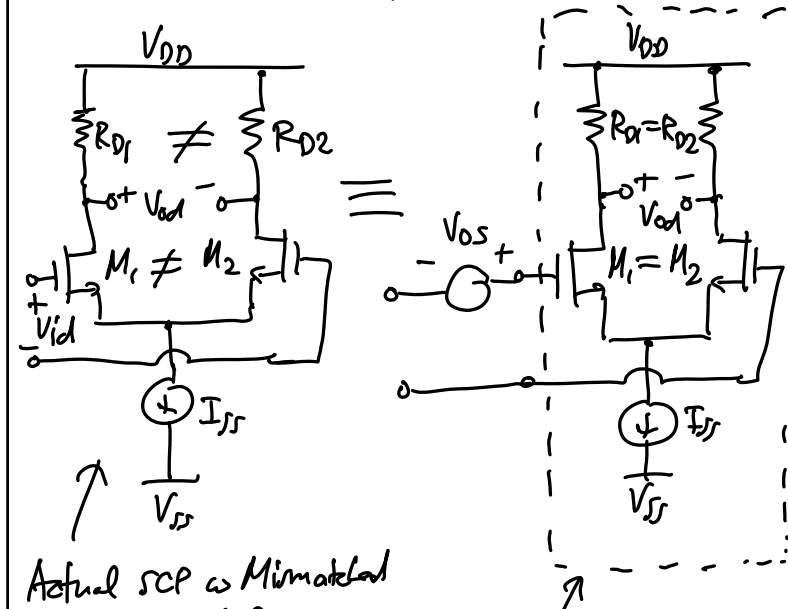 V_DD
R_D1 ≠ R_D2
+ V_od -
M_1 ≠ M_2
+
V_id
-
I_SS
V_SS
Actual SCP w Mismatched
≡
V_DD
R_D1 = R_D2
+ -
V_od
V_OS
- +
M_1 = M_2
I_SS
V_SS